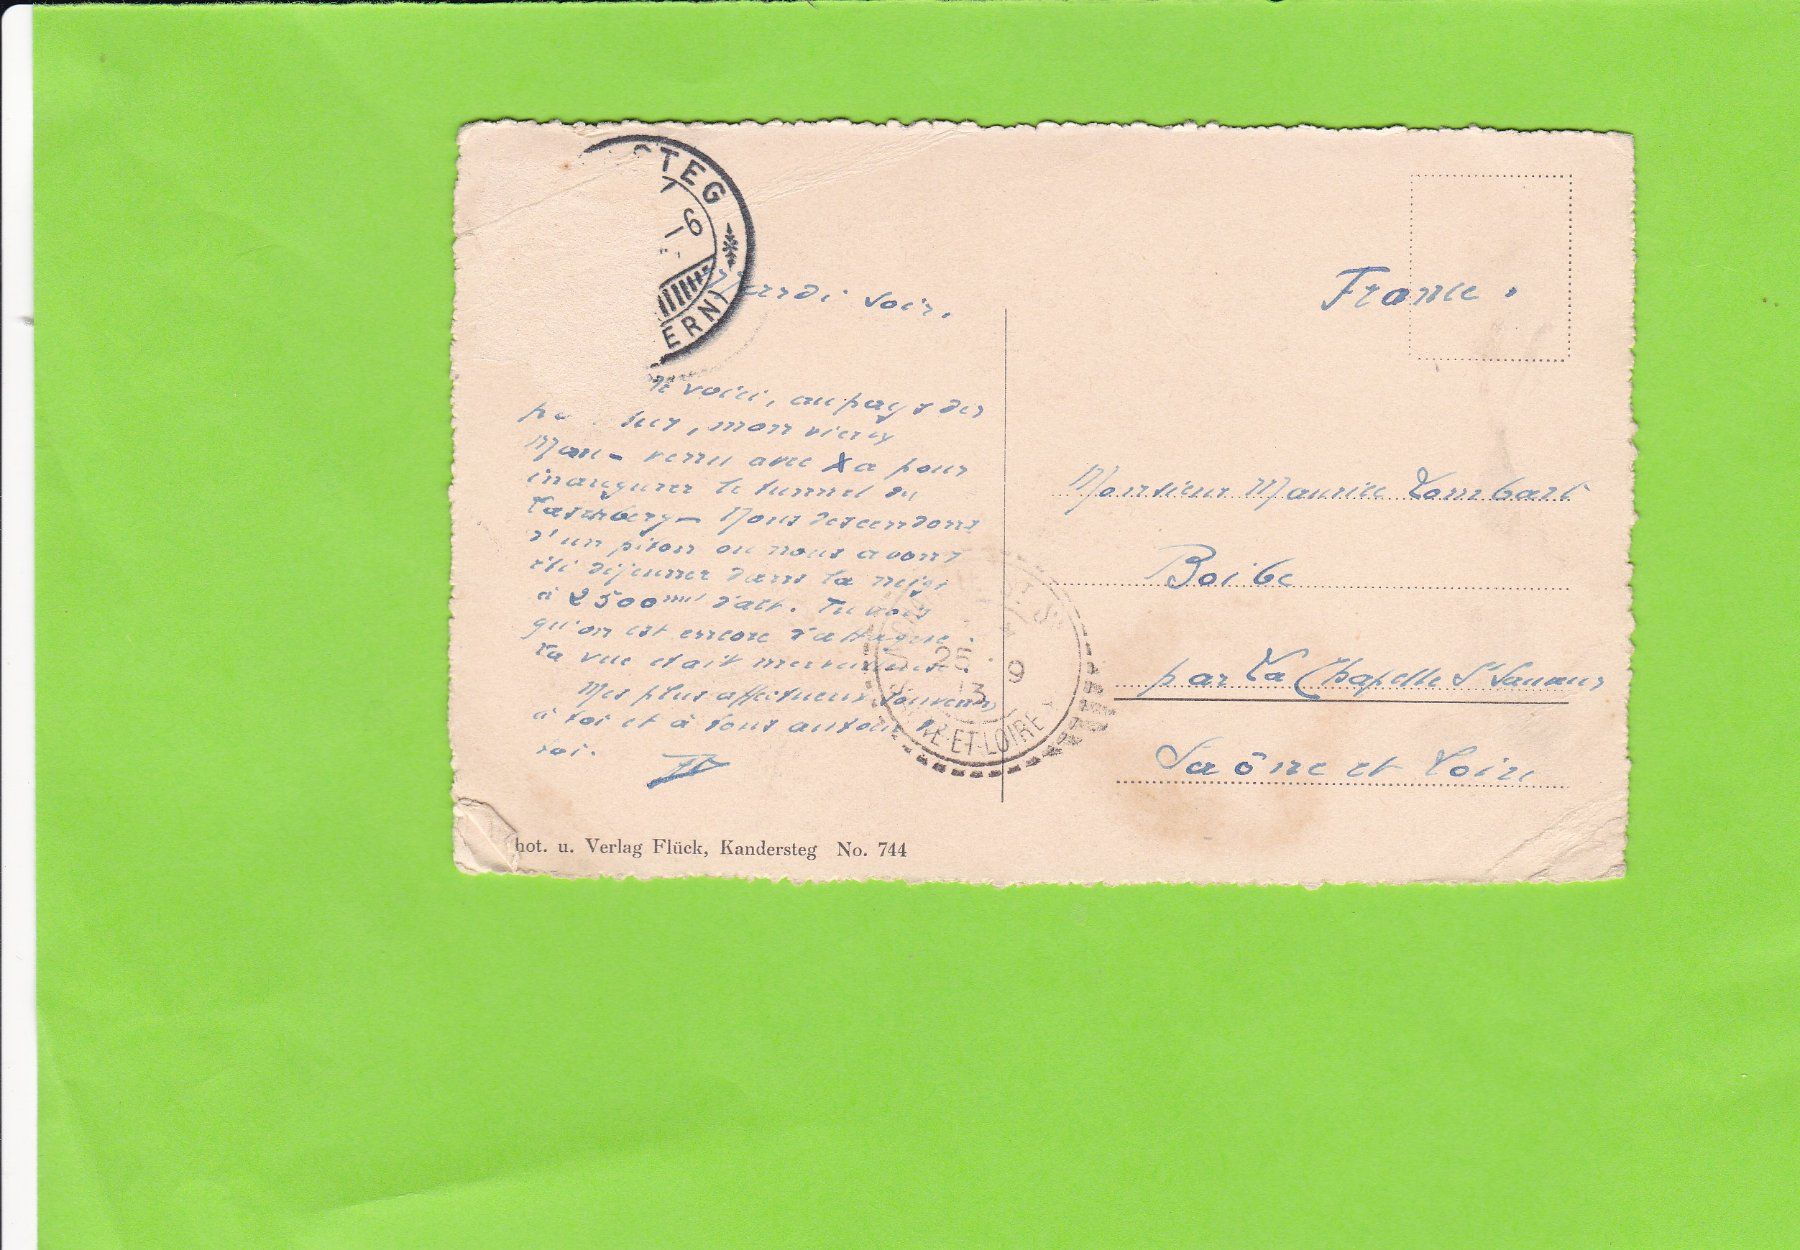 STEG
ERN)
Mardi soir.
France.
voici, au pays des
mon vieux
venu avec pour
inaugurer le tunnel du
Lœtschberg - Nous descendons
d'un piton ou nous avons
été déjeuner dans la neige
à 2500 d'alt. Tu vois
qu'on est encore d'attaque.
La vue etait merveilleuse.
Mes plus affectueux souvenirs
à toi et à tous autour de
toi.
Monsieur Maurice Lombard
par La Chapelle St Sauveur
Saône et Loire
25
9
13
ET-LOIRE
hot. u. Verlag Flück, Kandersteg No. 744